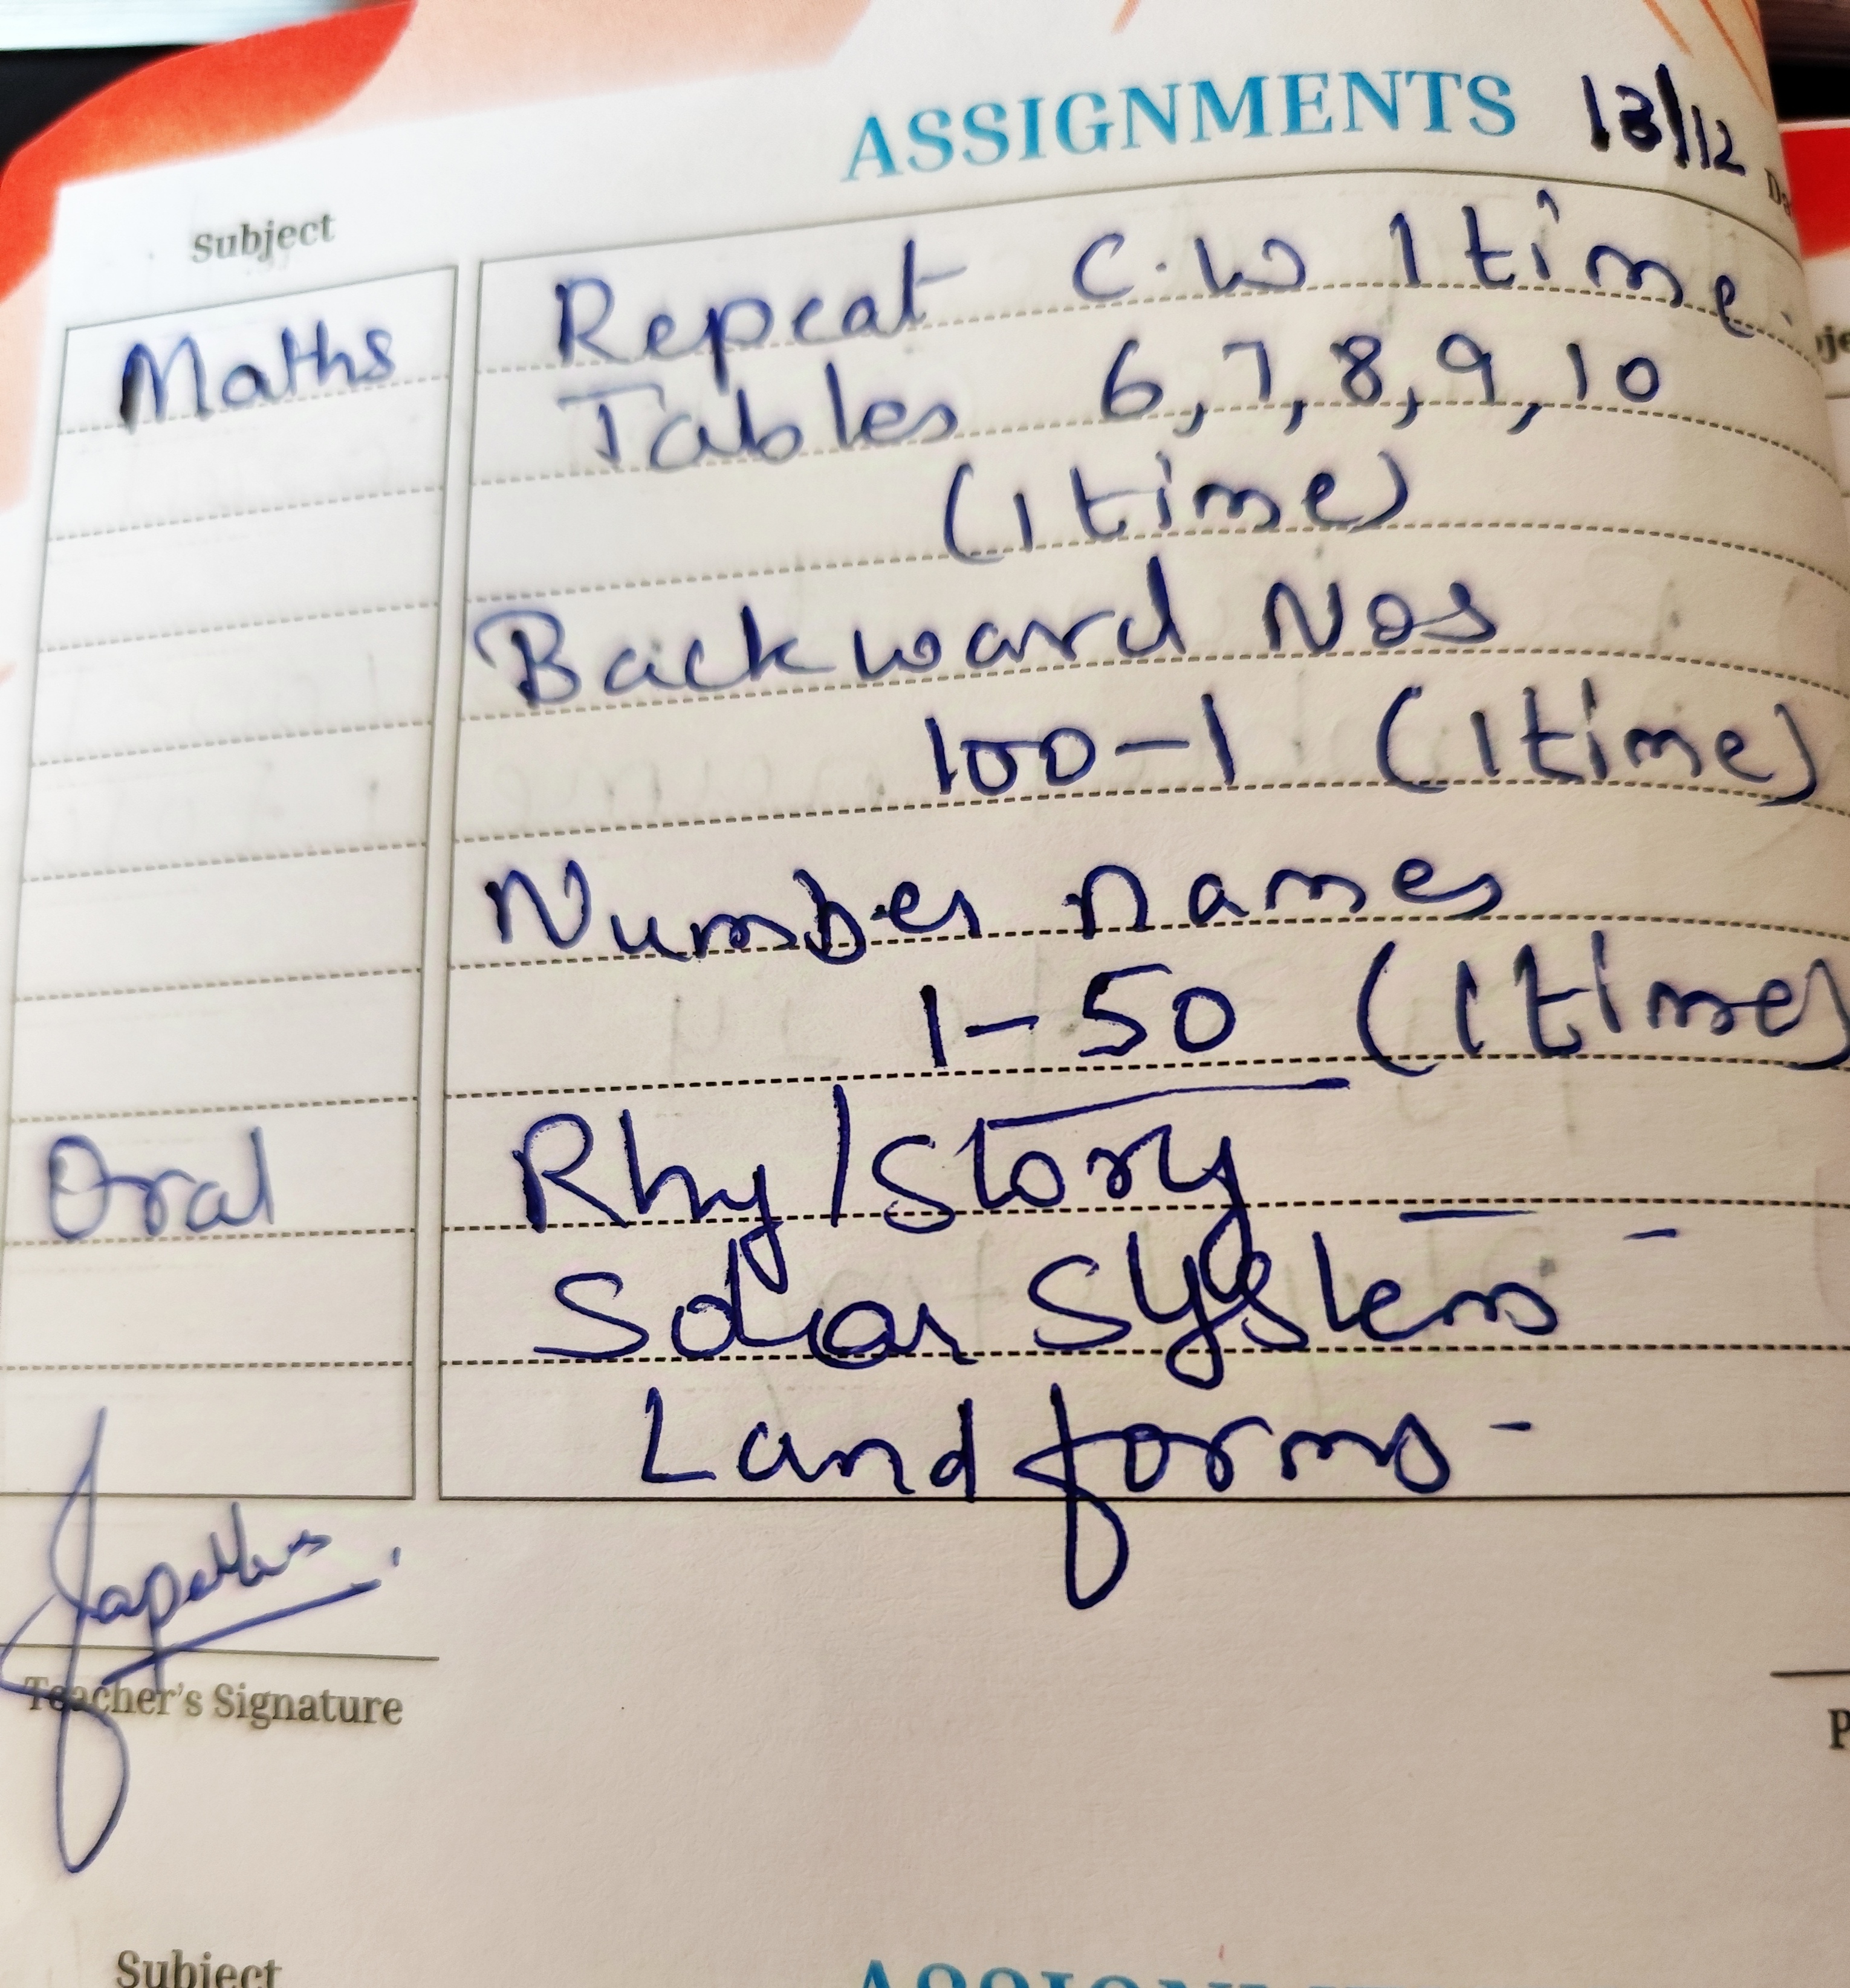 ASSIGNMENTS 13/12
Subject
Maths Repeat C.W 1 time.
Tables 6, 7, 8, 9, 10
(1 time)
Backward Nos
100-1 (1 time)
Number names
1-50 (1 time)
Oral Rhy/Story
Solar System
Landforms -
Teacher's Signature
Subject
ASSIGNMENTS